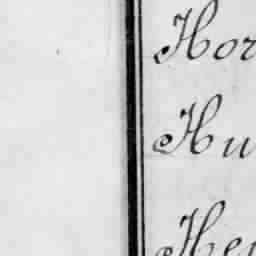 Hor
Hu
Hei